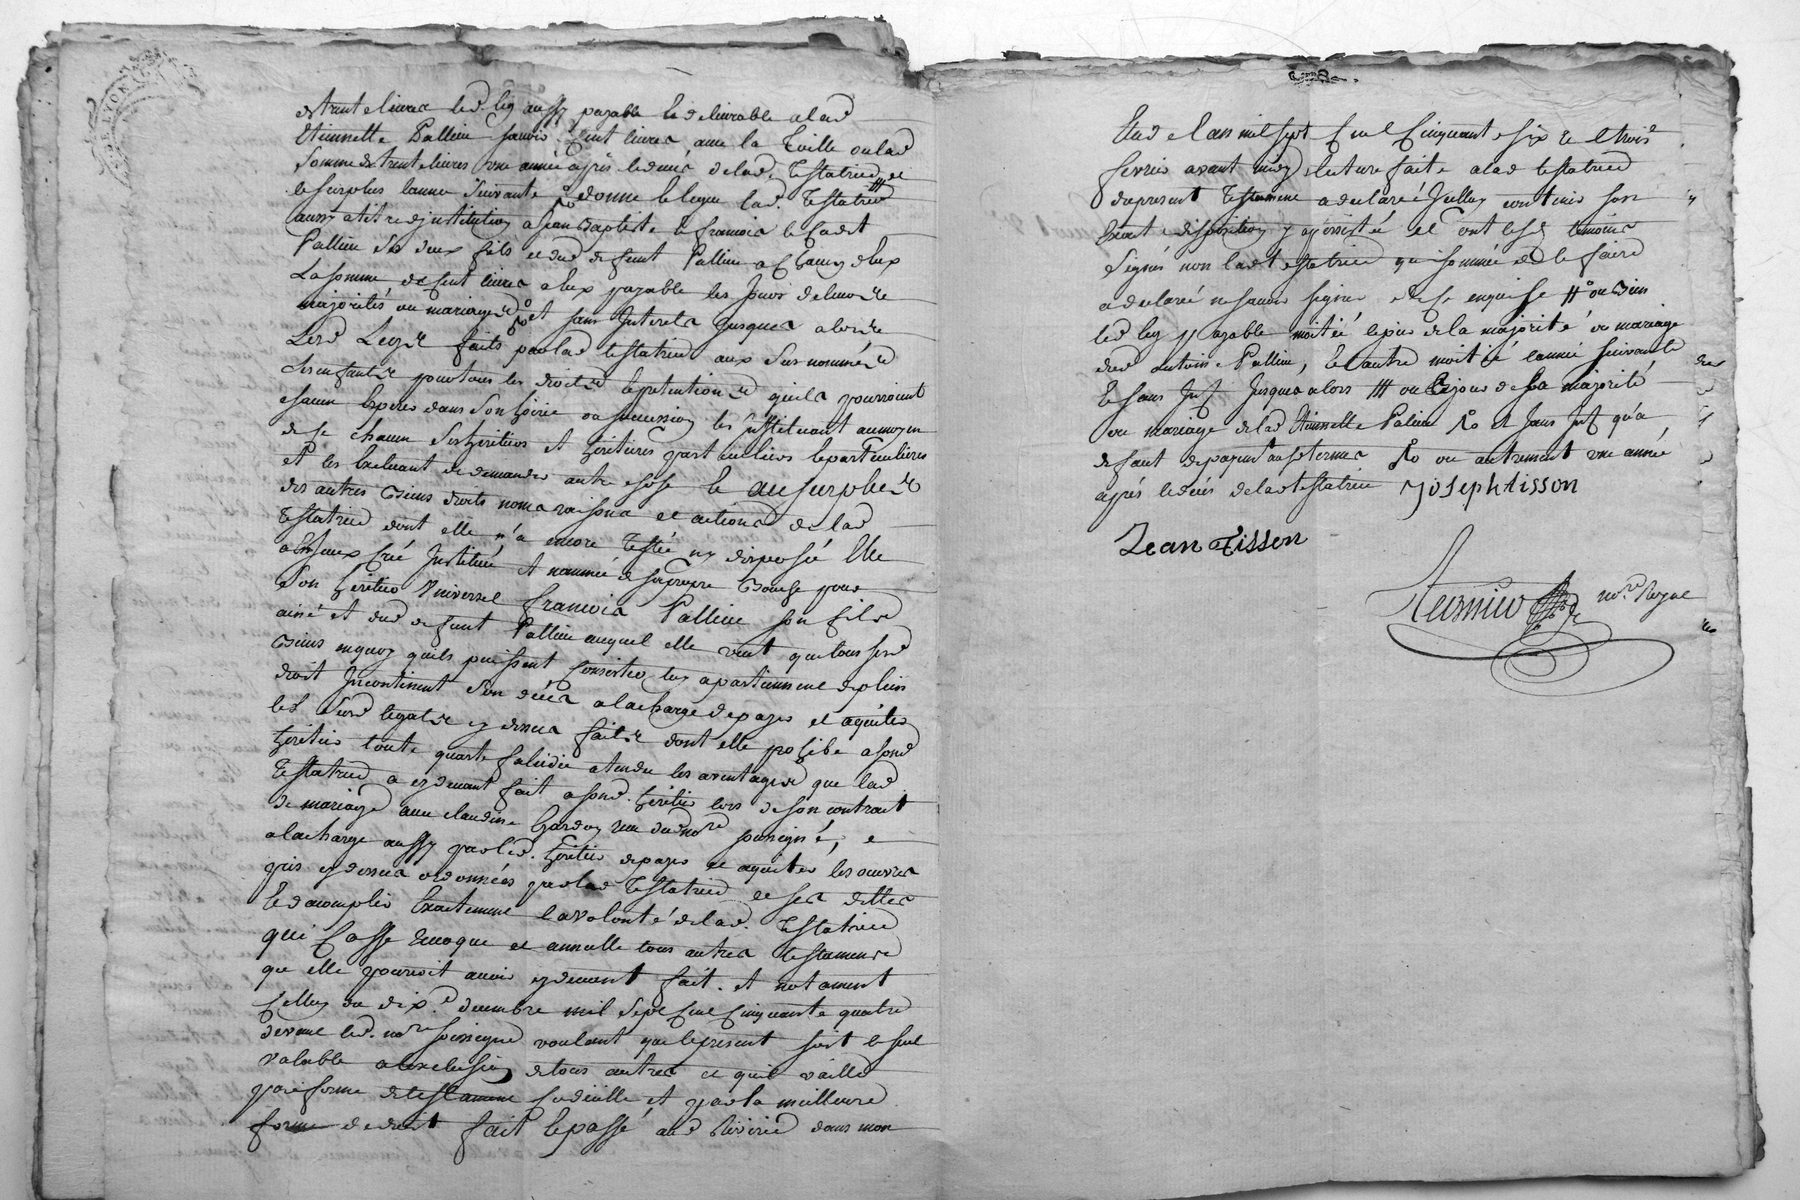 de trente livres led. leg aussy payable et delivrable a lad
Etiennette Pallieu scavoir Cent livres avec la Toille ou lad
Somme de trente livres une année après le deces de lad. Testatrice et
le surplus lannee suivante donne et legue lad. Testatrice
aussy a titre dinstitution a Jean Baptiste et francois le Cadet
Pallieu ses deux fils et dud defunt Pallieu a Chacun deux
La somme de Cent livres a eux payable les jours de leur
majorités ou mariages et sans Interets jusques alors
Lesd Legs faits par lad testatrice aux sus nommés
ses enfants pour tous les droits et pretentions quils pourroient
chacun Esperer dans son hoirie ou succession les instituant au moyen
de ce chacun ses heritiers et heritieres particuliers et particulieres
et les Excluant de demander autre chose et au surplus
des autres biens droits noms raisons et actions de lad
Testatrice dont elle n'a encore Testé ny disposé Elle
a fait Créé Institué et nommé de sa propre bouche pour
son heritier Universel francois Pallieu son fils
ainé et dud defunt Pallieu auquel elle veut que tous sesd
biens en quoy quils puissent Consister luy apartiennent de plein
droit Incontinent son deces a la charge de payer et aquiter
les susd legats cy dessus faits dont elle prohibe a sond
heritier toute quarte falcidie atendu les avantages que lad
Testatrice a cy devant fait a sond. heritier lors de son contrait
de mariage avec claudine Gardon recu dud nore soussigné, e
a la charge aussy par led. heritier de payer et aquiter les oeuvres
pies cy dessus ordonnées par lad Testatrice et ses dettes
et dacomplir Exactement la volonté de lad. Testatrice
qui Casse revoque et annulle tous autres testaments
que elle pourroit avoir cy devant fait. et notament
Celluy du dix.e decembre mil sept Cent Cinquante quatre
devant led. nore soussigné voulant que le present soit le seul
valable a lexclusion de tous autres et quil vaille
par forme de testament Codicille et par la meilleure
forme de droit fait et passé aud Riverie dans mon
Etude lan mil sept Cent Cinquante six et le trois
fevrier avant midy lecture faite a lad testatrice
du present Testament a declaré Icelluy contenir son
Exacte disposition y a persisté et ont lesd temoins
signés non lad testatrice qui sommée de le faire
a declaré ne scavoir signer de ce enquise /// ou bien
led leg payable moitié lejour de la majorité ou mariage
dud Antoine Pallieu, et lautre moitié lannée suivante
et sans Int jusques alors /// ou lejour de sa majorité
ou mariage de lad Etiennette Palieu et sans Int qu'a
defaut de payement au terme ou autrement une année
après le deces de lad testatrice Joseph tisson
Jean Tisson
nore. Royal